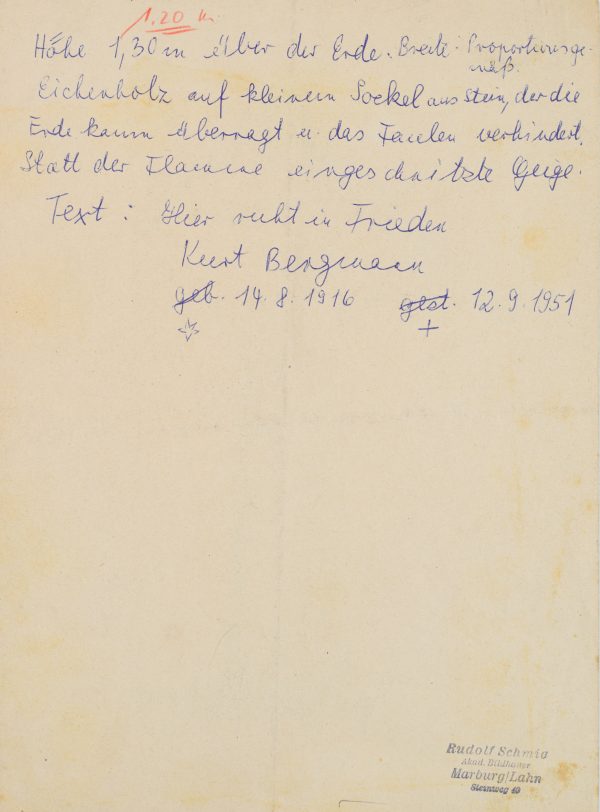 1.20 m
Höhe 1,30 m über der Erde. Breite: Proportionsge-
mäß.
Eichenholz auf kleinem Sockel aus Stein, der die
Erde kaum überragt u. das Faulen verhindert.
Statt der Flamme eingeschnitzte Geige.
Text: Hier ruht in Frieden
Kurt Bergmann
geb. 14.8.1916 gest. 12.9.1951
☆ +
Rudolf Schmid
Akad. Bildhauer
Marburg/Lahn
Sternweg 10